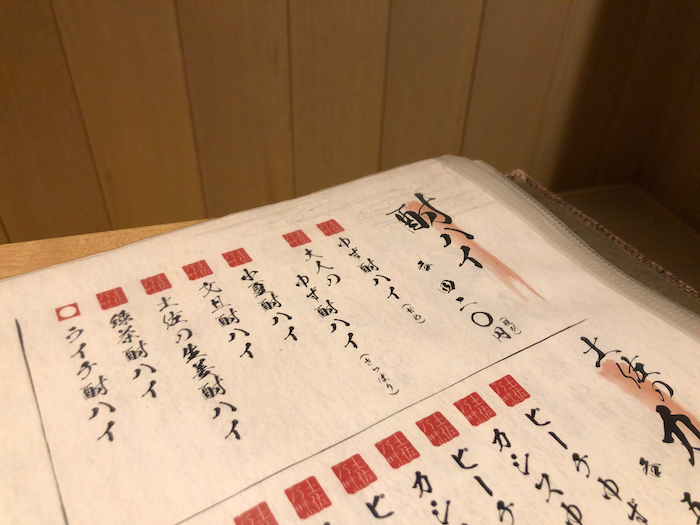 酎ハイ
各 四二〇円(税込)
ゆず酎ハイ(甘め)
大人のゆず酎ハイ(さっぱり)
小夏酎ハイ
文旦酎ハイ
土佐の生姜酎ハイ
緑茶酎ハイ
ライチ酎ハイ
土佐のカ
ピーチゆず
カシスゆ
ピーチ
カシ
ピ